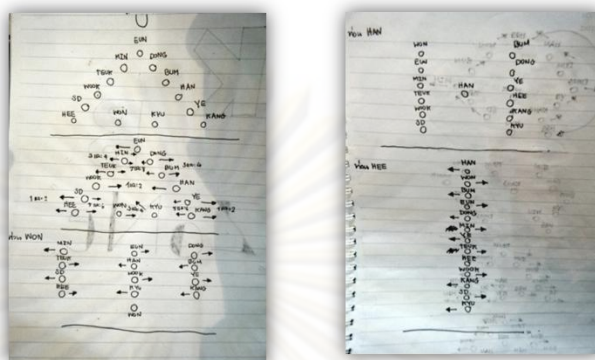 EUN
MIN DONG
TEUK BUM
WOOK HAN
SD YE
HEE WON KYU KANG
EUN
MIN DONG
TEUK BUM
WOOK HAN
SD YE
HEE WON KYU KANG
WON
MIN EUN DONG
TEUK HAN BUM
SD WOOK YE
HEE KYU KANG
WON
HAN
WON BUM
EUN DONG
MIN YE
TEUK HAN HEE
WOOK KANG
SD KYU
HEE
HAN
WON
BUM
EUN
DONG
MIN
YE
TEUK
HEE
WOOK
KANG
SD
KYU